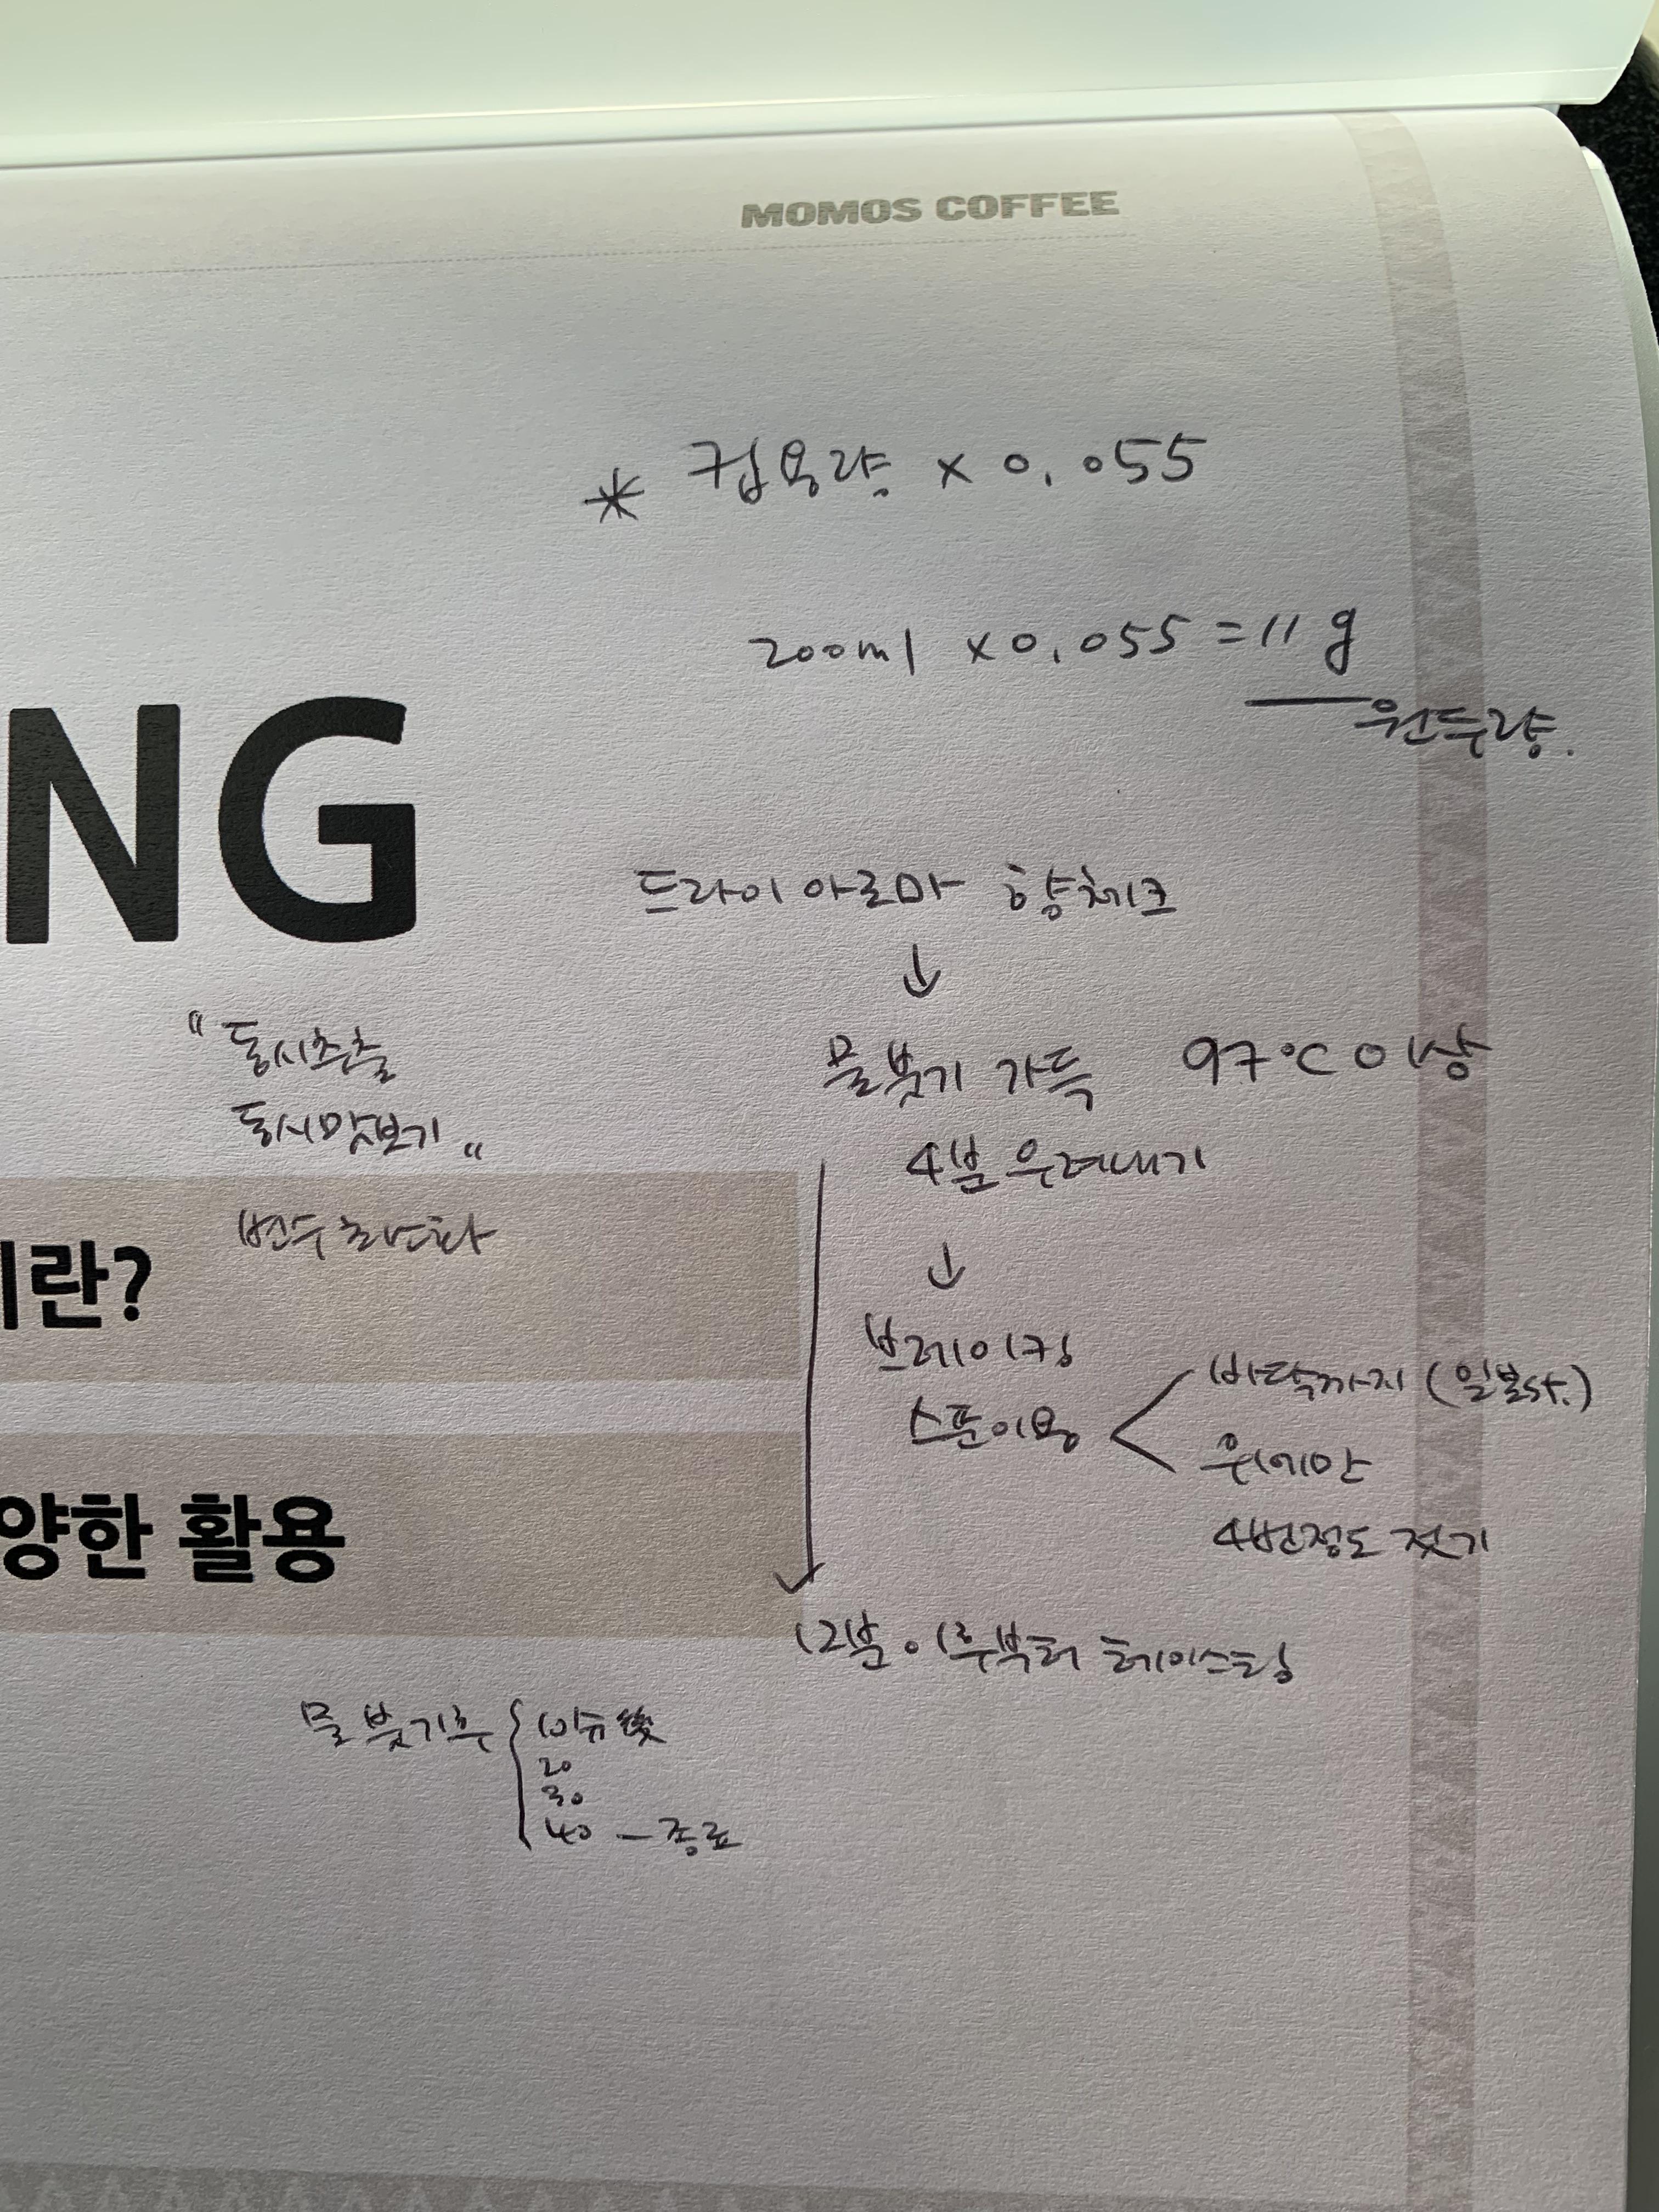 MOMOS COFFEE
* 컵용량 x 0.055
200ml x 0.055 = 11g
원두량.
NG
드라이 아로마 향체크
↓
물붓기 가득 97℃ 이상
4분 우려내기
"동시추출
동시맛보기"
변수 최소화
이란?
↓
브레이킹
스푼이용
바닥까지 (일본st.)
위에만
4번정도 젓기
양한 활용
12분 이후부터 테이스팅
물 붓기후
20
30
40 - 종료